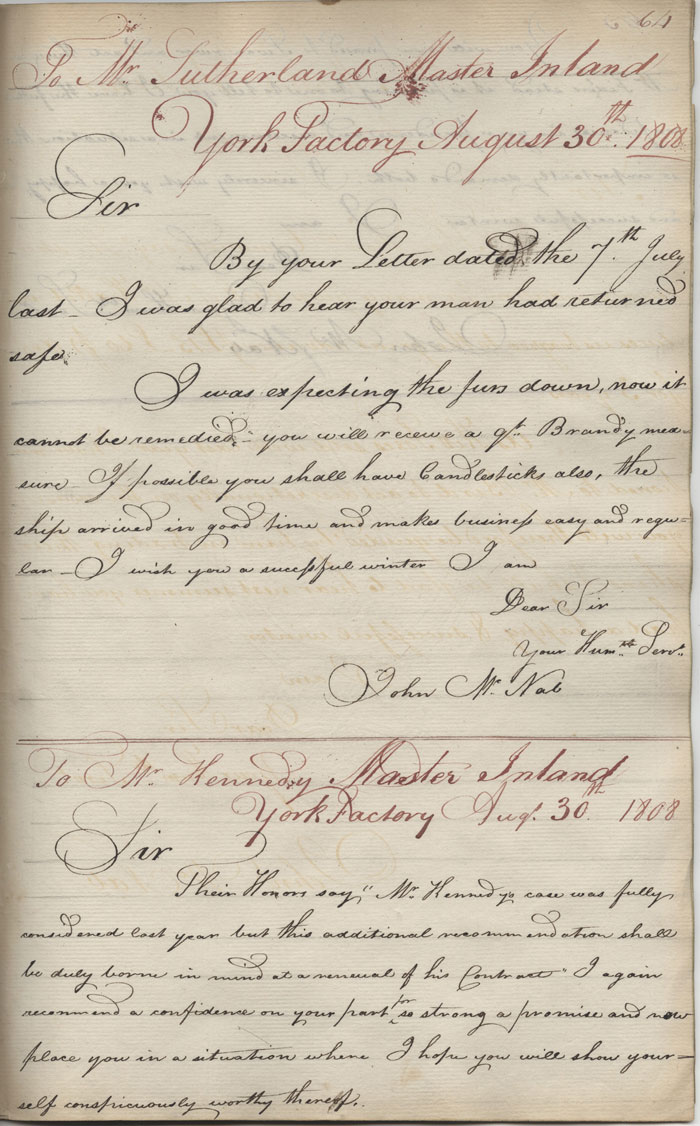 64
To Mr Sutherland Master Inland
York Factory August 30th. 1808
Sir
By your Letter dated the 7th July
last – I was glad to hear your man had returned
safe
I was expecting the furs down, now it
cannot be remedied – you will receive a qt. Brandy mea-
sure If possible you shall have Candlesticks also, the
ship arrived in good time and makes business easy and regu-
lar – I wish you a sucessful winter I am
Dear Sir
Your Humble Servt.
John Mc Nab
To Mr Kennedy Master Inland
York Factory Augt. 30th 1808
Sir
Their Honors say "Mr Kennedys case was fully
considered last year but this additional recommendation shall
be duly borne in mind at a renewal of his Contract" I again
recommend a confidence on your part for so strong a promise and now
place you in a situation where I hope you will show your-
self conspicuously worthy thereof.